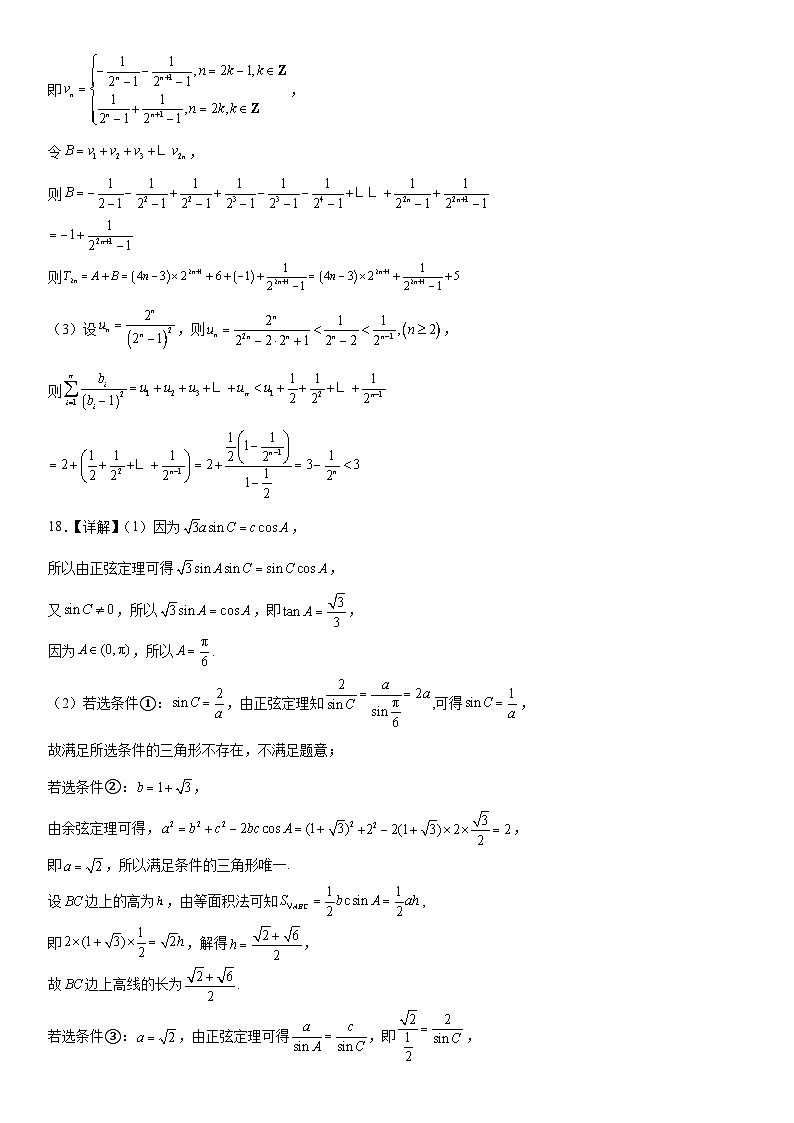 即 v_n = { -1/(2^n-1) - 1/(2^{n+1}-1), n = 2k-1, k∈Z
1/(2^n-1) + 1/(2^{n+1}-1), n = 2k, k∈Z ,
令 B = v_1 + v_2 + v_3 +∟ v_{2n} ,
则 B = -1/(2-1) - 1/(2^2-1) + 1/(2^2-1) + 1/(2^3-1) - 1/(2^3-1) - 1/(2^4-1) +∟∟ + 1/(2^{2n}-1) + 1/(2^{2n+1}-1)
= -1 + 1/(2^{2n+1}-1)
则 T_{2n} = A + B = (4n-3)×2^{2n+1} + 6 + (-1) + 1/(2^{2n+1}-1) = (4n-3)×2^{2n+1} + 1/(2^{2n+1}-1) + 5
（3）设 u_n = 2^n/(2^n-1)^2 ，则 u_n = 2^n/(2^{2n}-2·2^n+1) < 1/(2^n-2) < 1/2^{n-1} , (n ≥ 2) ,
则 ∑_{i=1}^{n} b_i/(b_i-1)^2 = u_1 + u_2 + u_3 +∟ +u_n < u_1 + 1/2 + 1/2^2 +∟ + 1/2^{n-1}
= 2 + (1/2 + 1/2^2 +∟ + 1/2^{n-1}) = 2 + (1/2(1 - 1/2^{n-1}))/(1 - 1/2) = 3 - 1/2^n < 3
18.【详解】（1）因为 √3 a sin C = c cos A ,
所以由正弦定理可得 √3 sin A sin C = sin C cos A ,
又 sin C ≠ 0 ，所以 √3 sin A = cos A ，即 tan A = √3/3 ,
因为 A∈(0,π) ，所以 A = π/6 .
（2）若选条件①：sin C = 2/a ，由正弦定理知 2/sin C = a/sin(π/6) = 2a ,可得 sin C = 1/a ,
故满足所选条件的三角形不存在，不满足题意；
若选条件②：b = 1+√3 ,
由余弦定理可得，a^2 = b^2 + c^2 - 2bc cos A = (1+√3)^2 + 2^2 - 2(1+√3)×2×√3/2 = 2 ,
即 a = √2 ，所以满足条件的三角形唯一.
设 BC 边上的高为 h ，由等面积法可知 S_{∇ABC} = 1/2 bc sin A = 1/2 ah ,
即 2×(1+√3)×1/2 = √2 h ，解得 h = (√2+√6)/2 ,
故 BC 边上高线的长为 (√2+√6)/2 .
若选条件③：a = √2 ，由正弦定理可得 a/sin A = c/sin C ，即 √2/(1/2) = 2/sin C ,